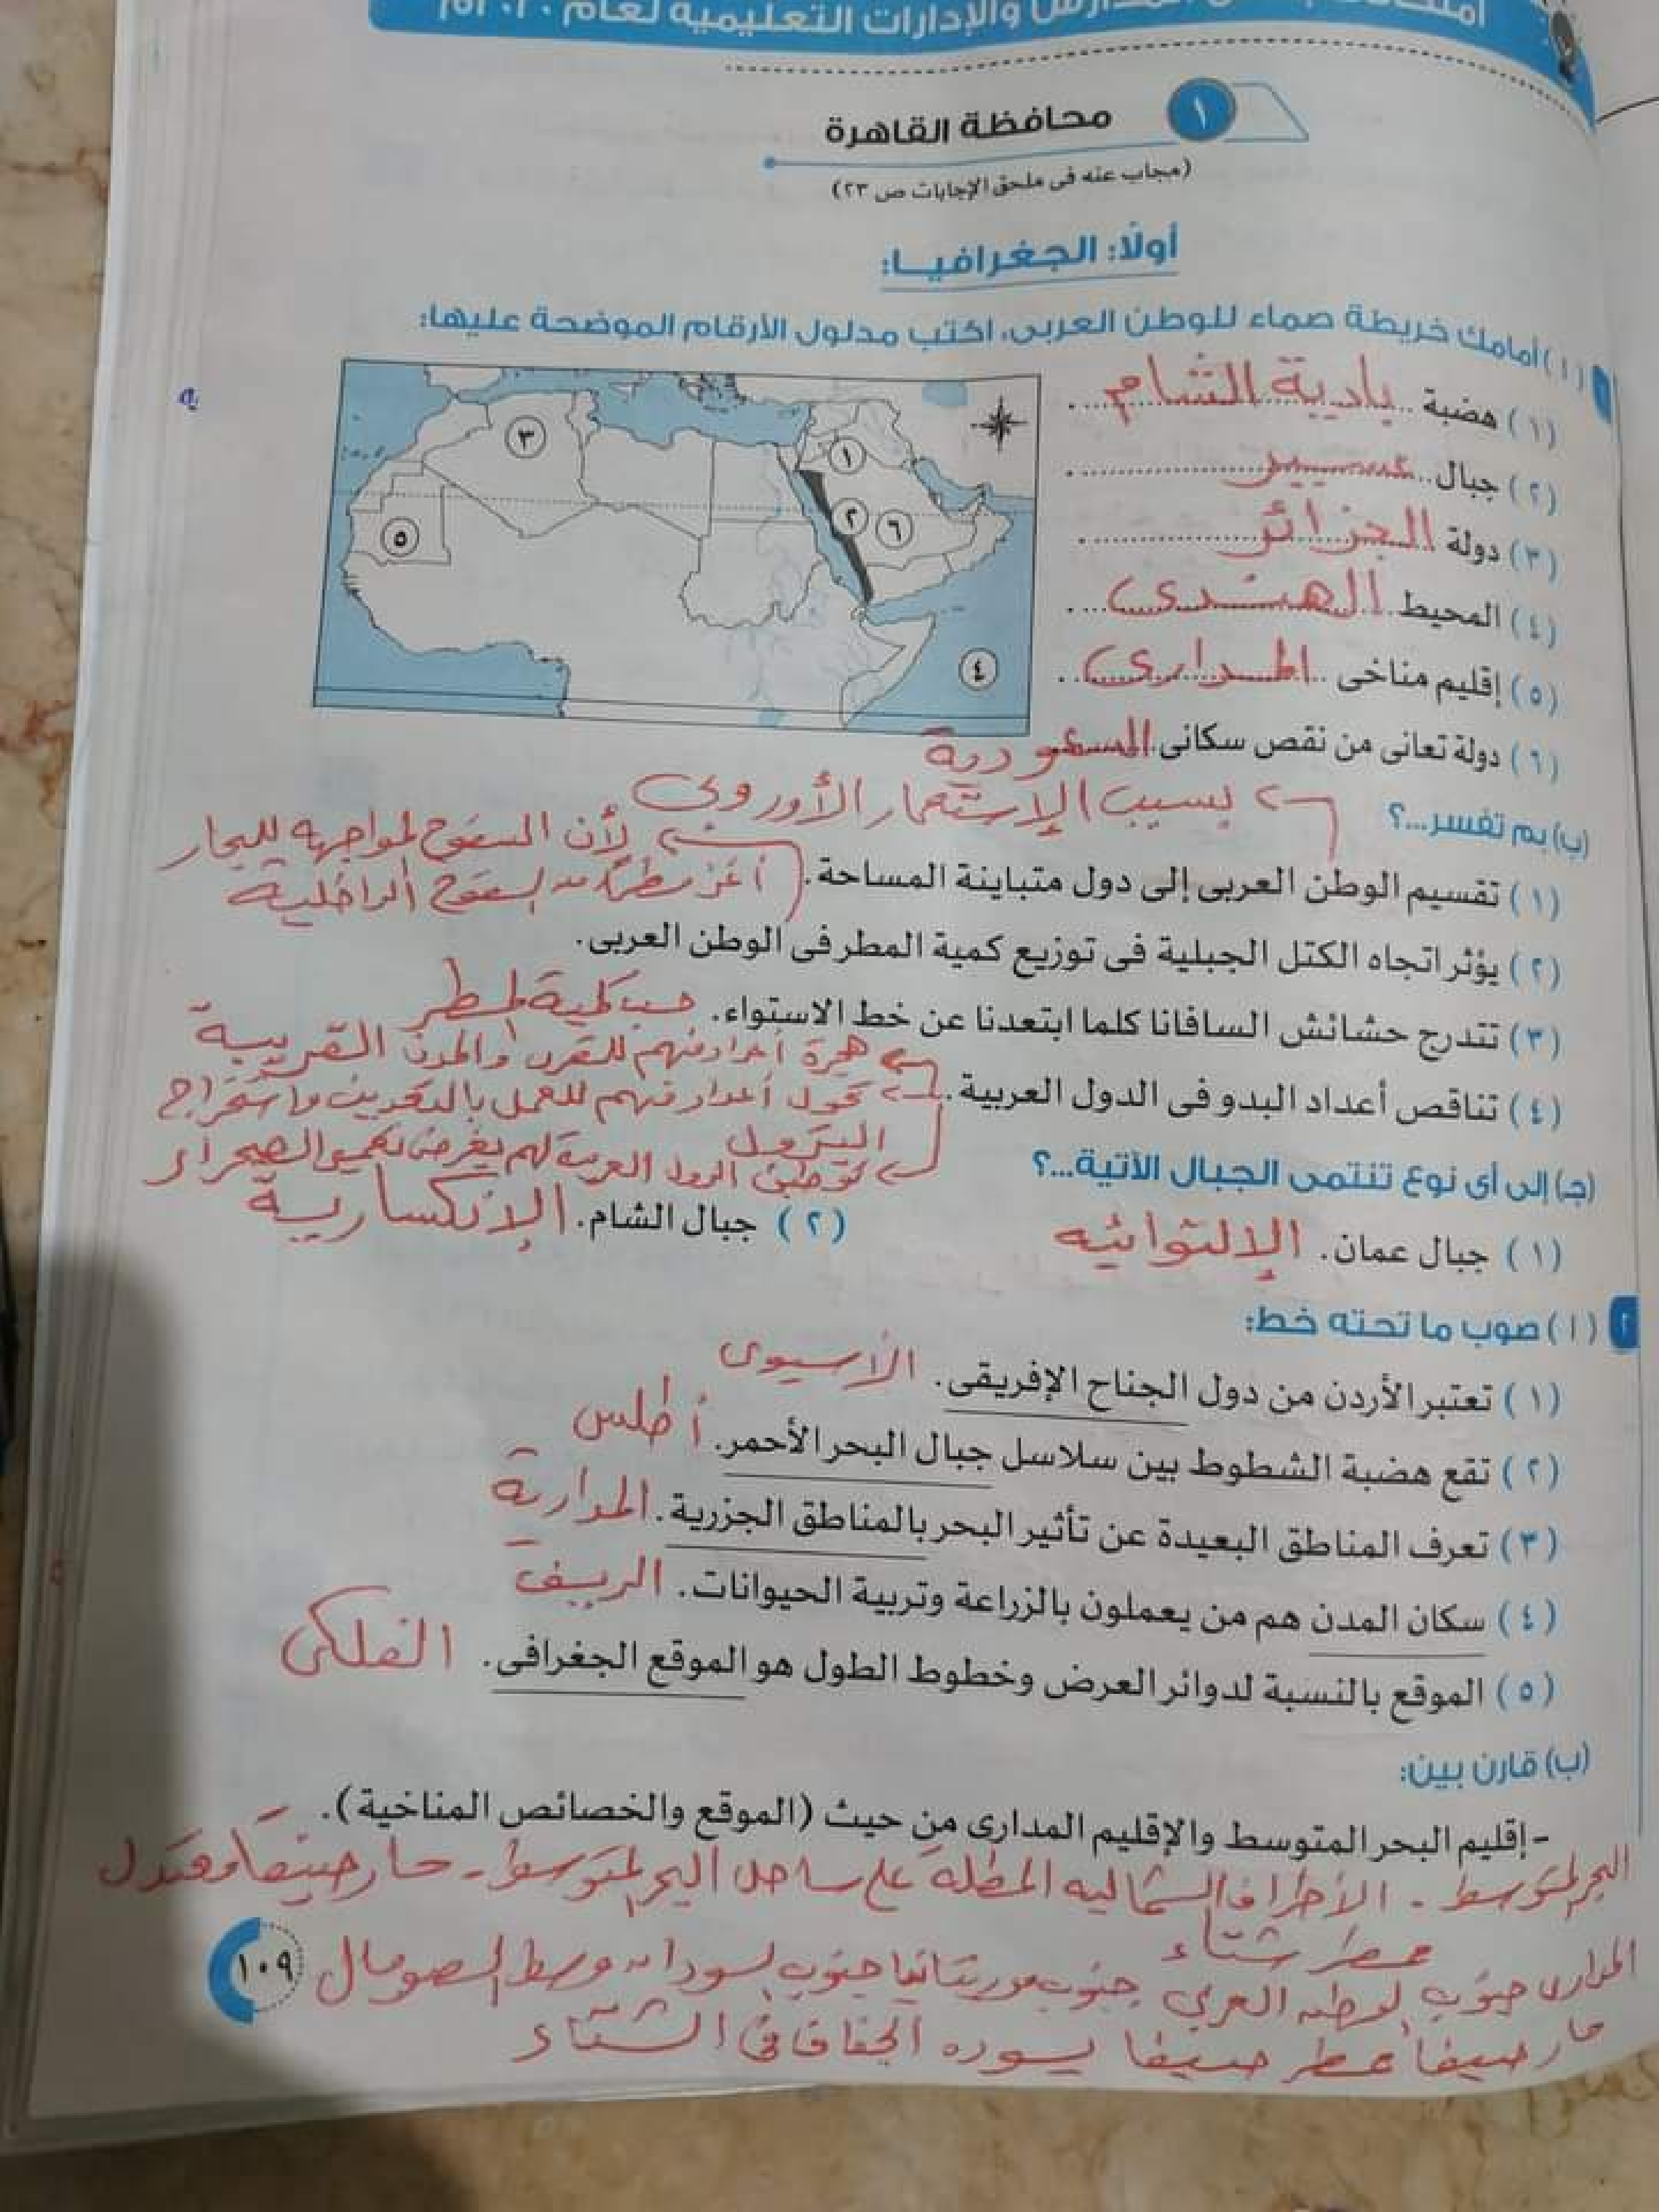 والإدارات التعليمية لعام
١
محافظة القاهرة
(مجاب عنه فى ملحق الإجابات ص ٢٣)
أولًا: الجغرافيـا:
١ (أ) أمامك خريطة صماء للوطن العربى، اكتب مدلول الأرقام الموضحة عليها:
(١) هضبة بادية الشام
(٢) جبال عسير
(٣) دولة الجزائر
(٤) المحيط الهندى
(٥) إقليم مناخى المدارى
(٦) دولة تعانى من نقص سكانى السعودية
١
٢
٣
٤
٥
٦
(ب) بم تفسر...؟
بسبب الإستعمار الأوروبى
(١) تقسيم الوطن العربى إلى دول متباينة المساحة.
لأن السفوح المواجهه للبحار
أغزر مطرًا من السفوح الداخلية
(٢) يؤثر اتجاه الكتل الجبلية فى توزيع كمية المطر فى الوطن العربى.
(٣) تتدرج حشائش السافانا كلما ابتعدنا عن خط الاستواء. حسب كمية المطر
هجرة أعداد منهم للقرى والمدن القريبة
(٤) تناقص أعداد البدو فى الدول العربية. تحول أعداد منهم للعمل بالتعدين واستخراج
البترول
توطين الدول العربية لهم بغرض تعمير الصحراء
(جـ) إلى أى نوع تنتمى الجبال الآتية...؟
(١) جبال عمان. الإلتوائيه
(٢) جبال الشام. الإنكسارية
٢ (أ) صوب ما تحته خط:
(١) تعتبر الأردن من دول الجناح الإفريقى. الأسيوى
(٢) تقع هضبة الشطوط بين سلاسل جبال البحر الأحمر. أطلس
(٣) تعرف المناطق البعيدة عن تأثير البحر بالمناطق الجزرية. المدارية
(٤) سكان المدن هم من يعملون بالزراعة وتربية الحيوانات. الريف
(٥) الموقع بالنسبة لدوائر العرض وخطوط الطول هو الموقع الجغرافى. الفلكى
(ب) قارن بين:
- إقليم البحر المتوسط والإقليم المدارى من حيث (الموقع والخصائص المناخية).
البحر المتوسط - الأطراف الشماليه المطلة على ساحل البحر المتوسط - حار صيفًا معتدل
ممطر شتاء
المدارى جنوب الوطن العربى جنوب موريتانيا جنوب السودان وسط الصومال
حار صيفا ممطر صيفا يسوده الجفاف فى الشتاء
١٠٩